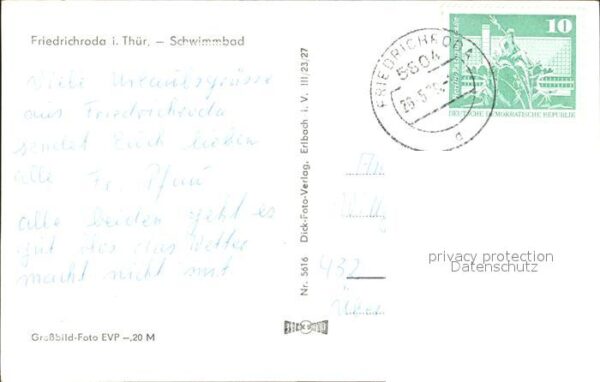 Friedrichroda i. Thür, – Schwimmbad
Viele Urlaubsgrüsse
aus Friedrichroda
sendet Euch lieben
alle Fr.
alle beiden geht es
gut blos das Wetter
macht nicht mit
Großbild-Foto EVP –,20 M
Nr. 5616 Dick-Foto-Verlag, Erlbach i. V. III/23/27
FRIEDRICHRODA
5804
10
DEUTSCHE DEMOKRATISCHE REPUBLIK
432
privacy protection
Datenschutz